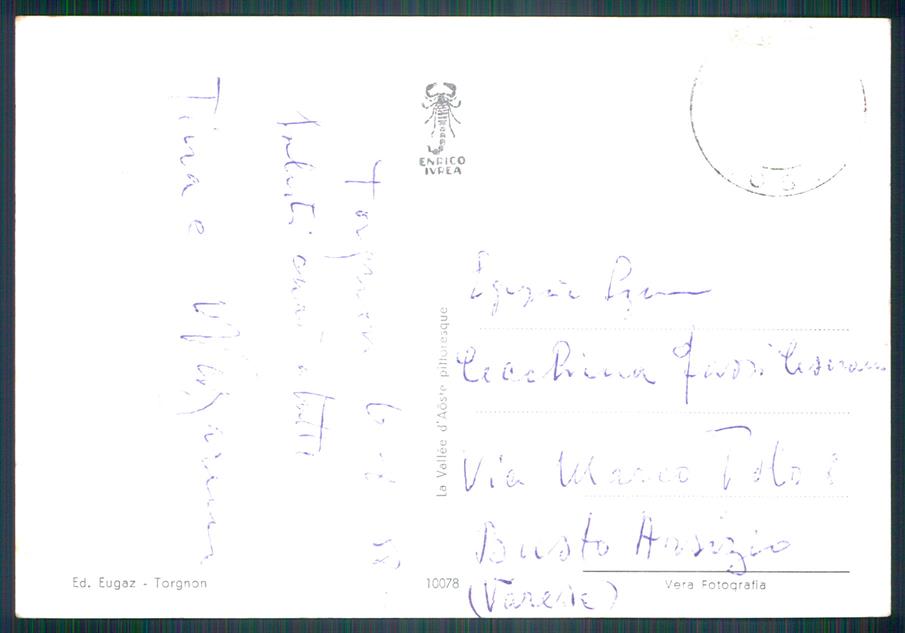 Torgnon 6-8-58
Saluti cari a tutti
Tina e
ENRICO
IVREA
La Vallée d'Aôste pittoresque
Cecchina
Via Marco Polo
Busto Arsizio
(Varese)
Ed. Eugaz - Torgnon
10078
Vera Fotografia